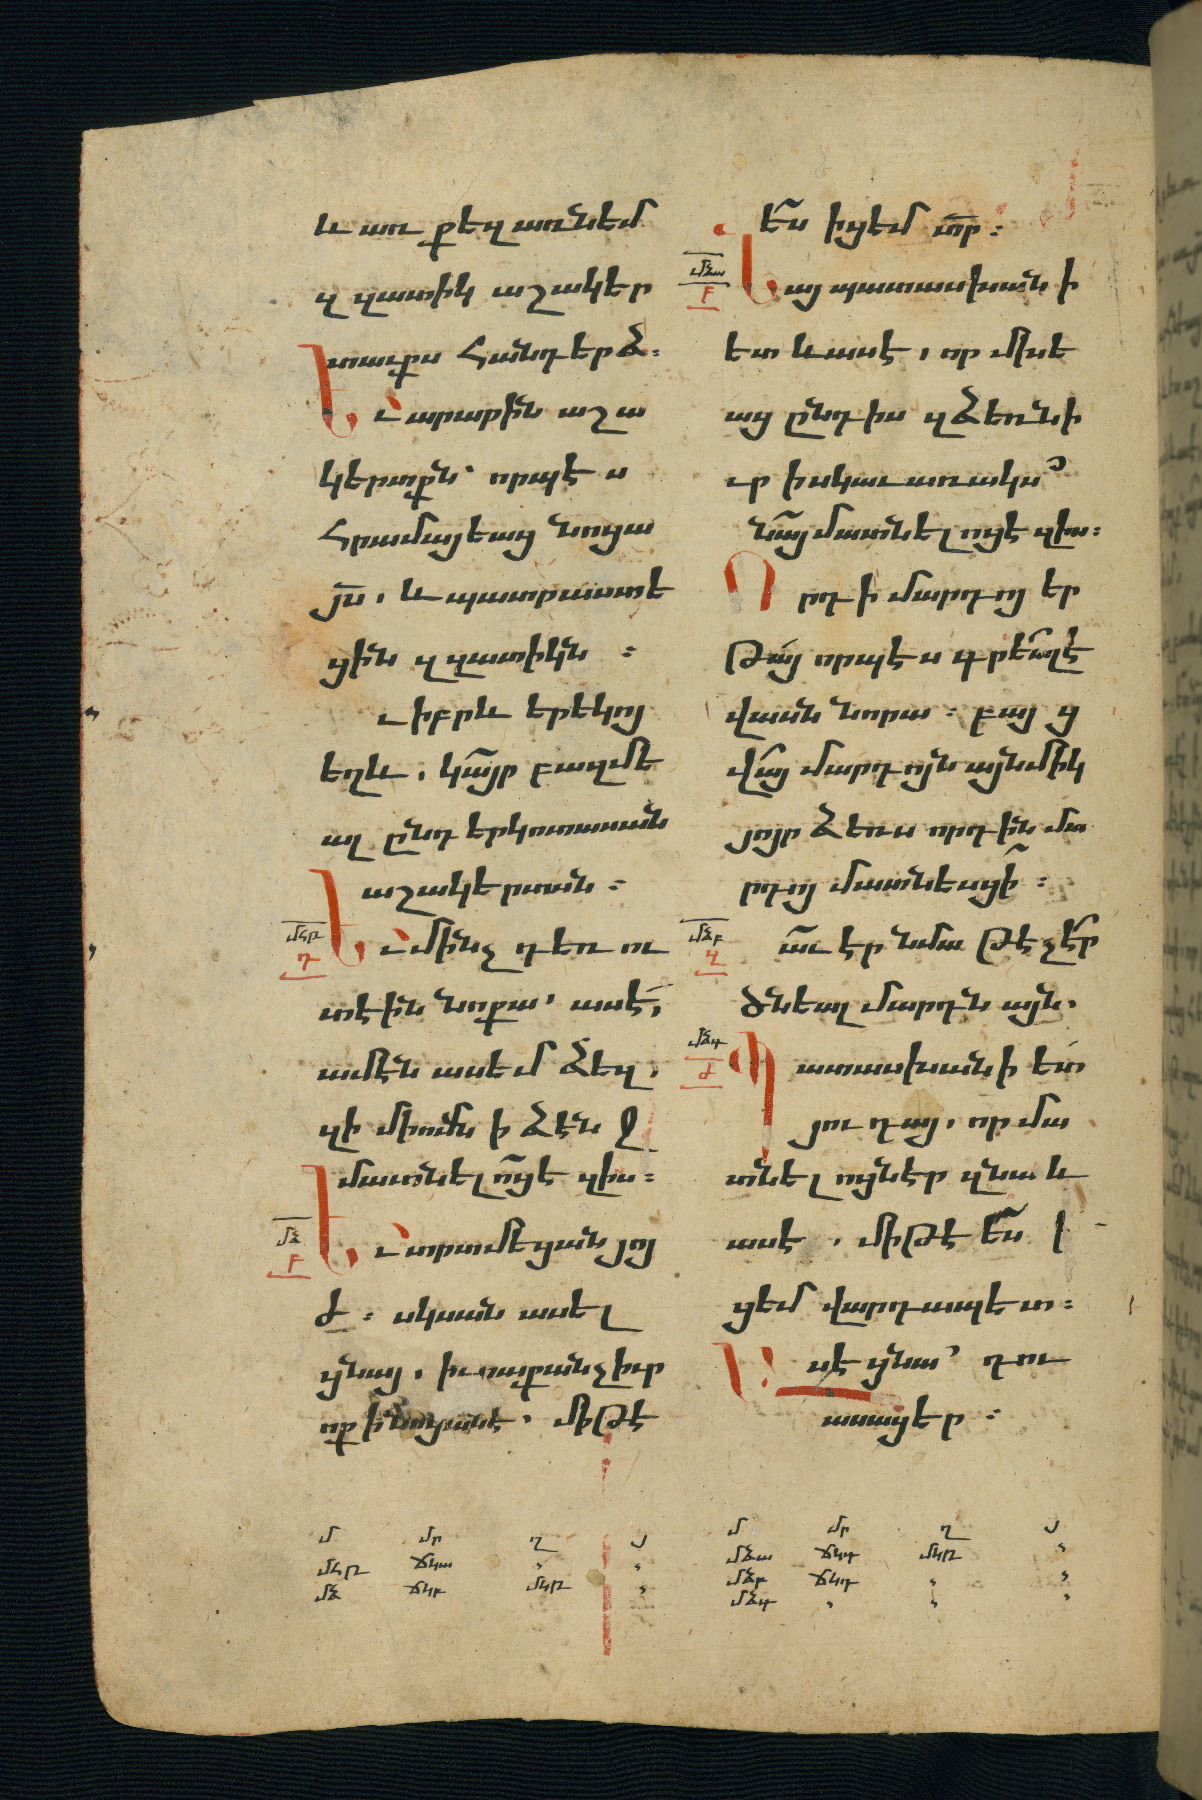 և առ քեզ առնեմ
զզատիկ աշակեր
տաւքս հանդերձ։
Եւ արարին աշա
կերտքն՝ որպէս
հրամայեաց նոցա
յս̅, և պատրաստե
ցին զզատիկն ։
Եւ իբրև երեկոյ
եղև, կա̅յր բազմե
ալ ընդ երկոտասան
աշակերտսն ։
մհթ
դ
Եւ մինչ դեռ ու
տէին նոքա, ասէ,
ամէն ասեմ ձեզ,
զի միոմն ի ձէնջ
մատնելո̅ցէ զիս։
մձ
բ
Եւ տրտմեցան յոյ
ժ ։ սկսան ասել
ցնայ, իւրաքանչիւր
ոք ի նոցանէ, միթէ
ե̅ս իցեմ տ̅ր ։
մձա
բ
Նայ պատասխանի
ետ և ասէ, որ մխե
աց ընդ իս զձեռն ի
ւր ի սկաւառակս՝
նա̅յ մատնելոցէ զիս։
Որդի մարդոյ եր
թայ որպէս գրեալ է
վասն նորա ։ բայց
վա̅յ մարդոյն այնմիկ
յոյր ձեռս որդին մա
րդոյ մատնեսցի ։
մձբ
զ
լա̅ւ էր նմա թէ չէ̅ր
ծնեալ մարդն այն,
մձգ
ժ
Պատասխանի ետ
յուդայ, որ մա
տնելոցն էր զնա և
ասէ , միթէ ե̅ս ի
ցեմ վարդապետ ։
Ասէ ցնա՝ դու
ասացեր ։
մ մր ղ յ
մհթ ճկա , ,
մձ ճկբ մկթ ,
մ մր ղ յ
մձա ճկգ մկթ ,
մձբ ճկդ , ,
մձգ , , ,